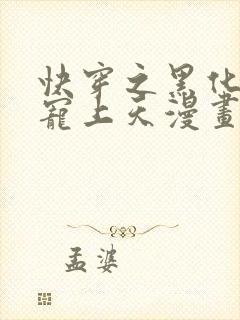 快穿之黑化
寵上天漫畫
孟婆